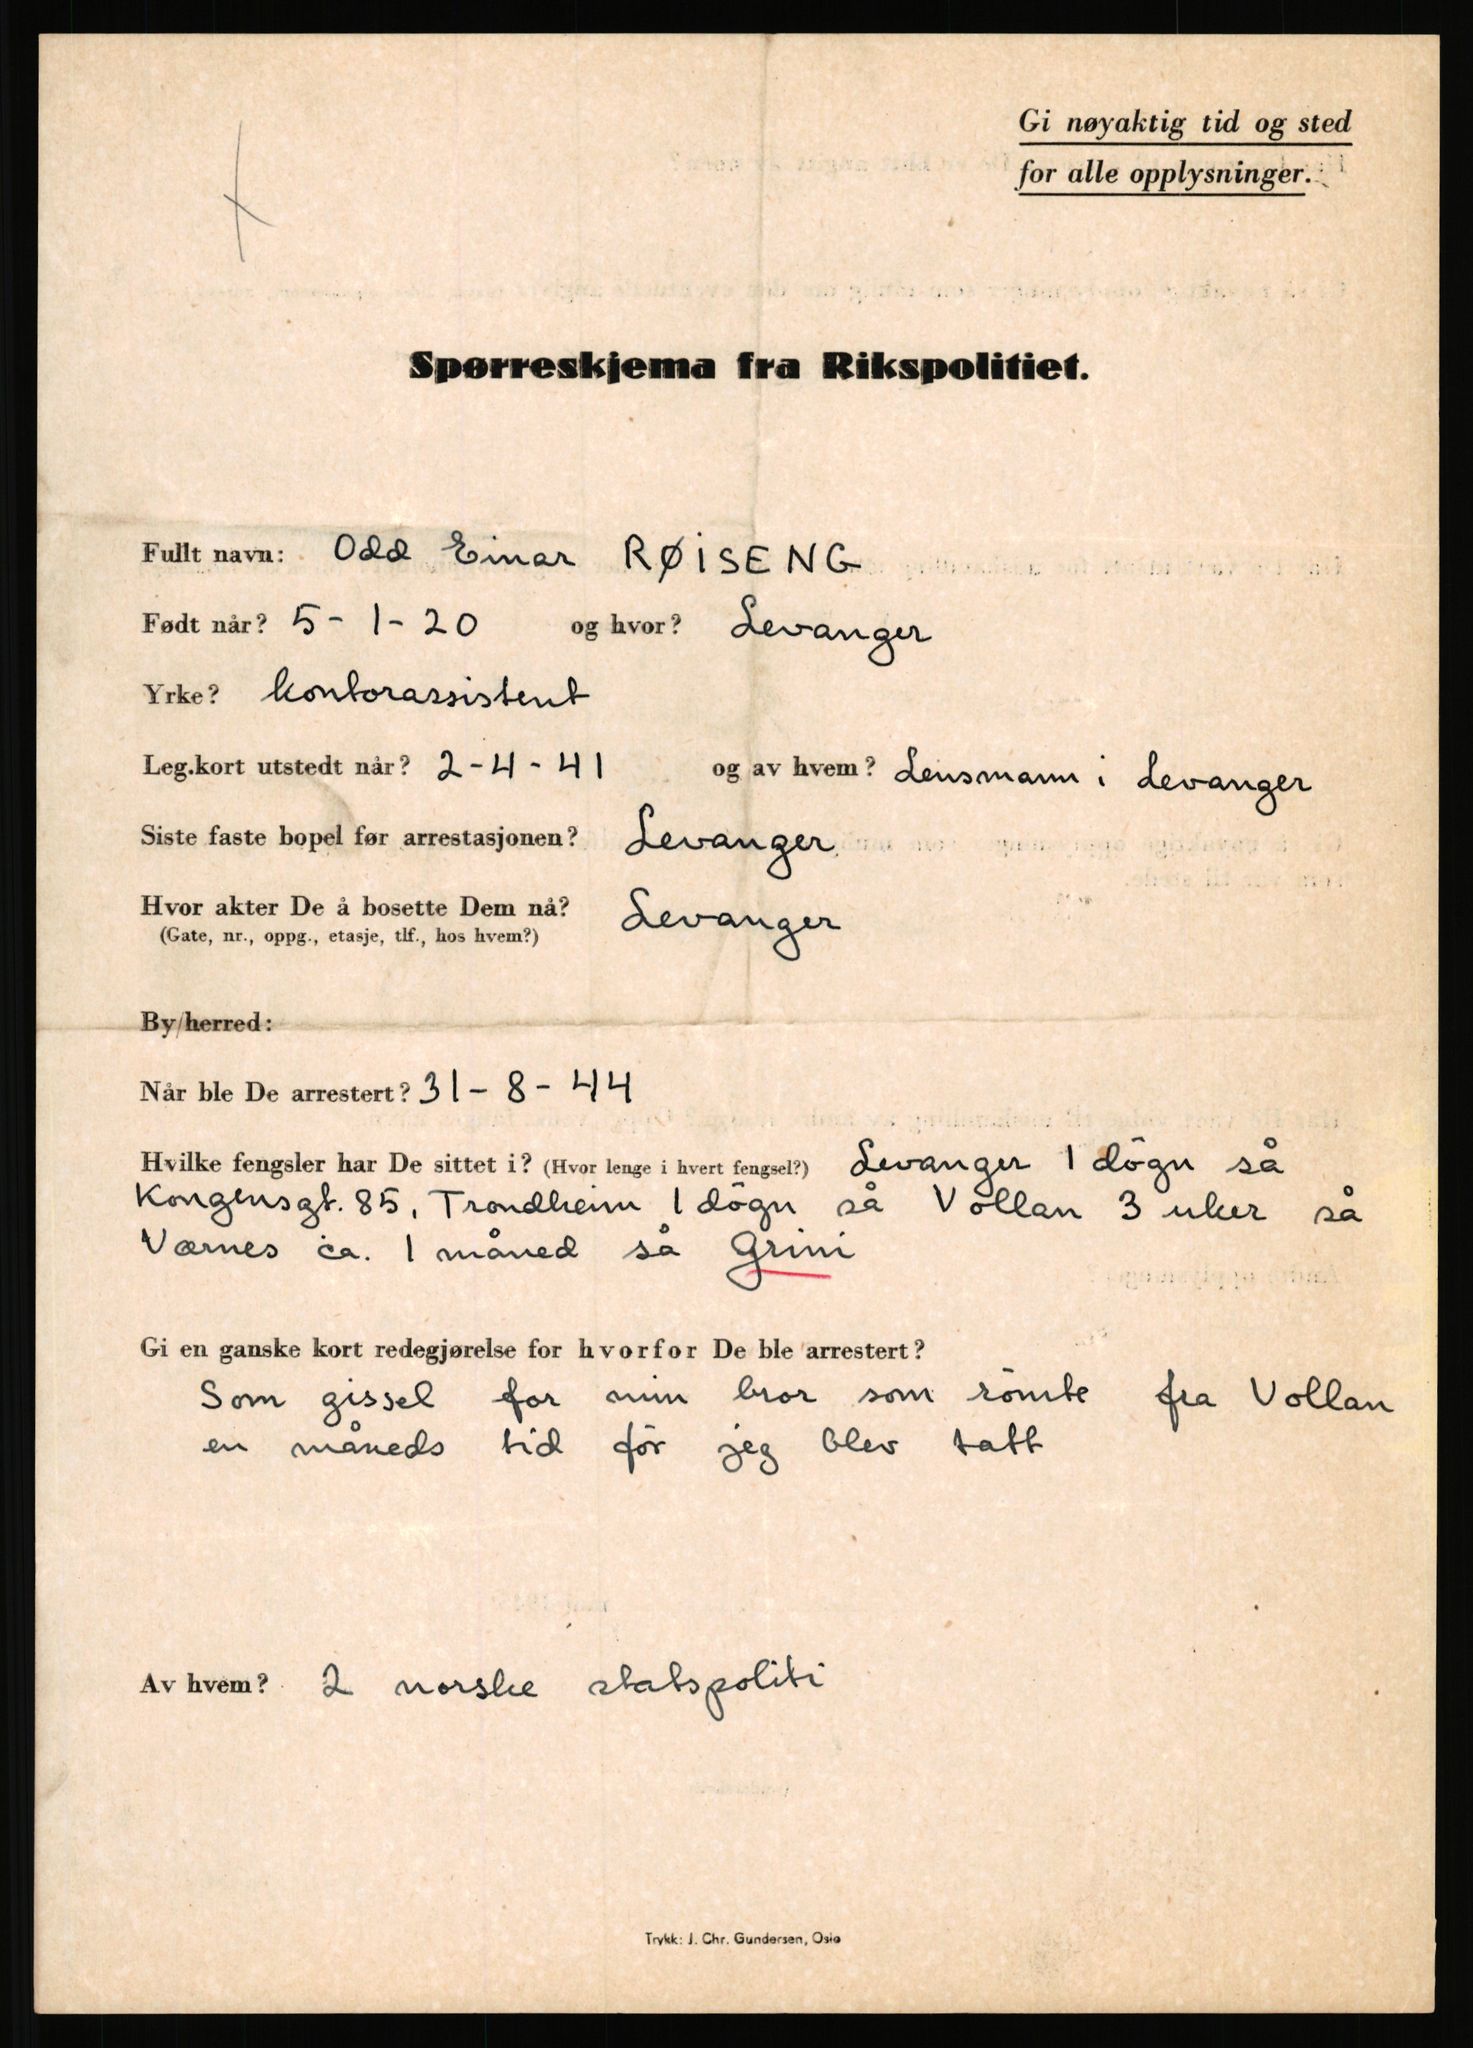 Gi nøyaktig tid og sted
for alle opplysninger.
Spørreskjema fra Rikspolitiet.
Fullt navn: Odd Einar RØISENG
Født når? 5-1-20 og hvor? Levanger
Yrke? kontorassistent
Leg.kort utstedt når? 2-4-41 og av hvem? Lensmann i Levanger
Siste faste bopel før arrestasjonen? Levanger
Hvor akter De å bosette Dem nå? Levanger
(Gate, nr., oppg., etasje, tlf., hos hvem?)
By/herred:
Når ble De arrestert? 31-8-44
Hvilke fengsler har De sittet i? (Hvor lenge i hvert fengsel?) Levanger 1 dögn så
Kongensgt. 85, Trondheim 1 dögn så Vollan 3 uker så
Værnes ca. 1 måned så Grini
Gi en ganske kort redegjørelse for hvorfor De ble arrestert?
Som gissel for min bror som römte fra Vollan
en måneds tid för jeg blev tatt
Av hvem? 2 norske statspoliti
Trykk: J. Chr. Gundersen, Oslo